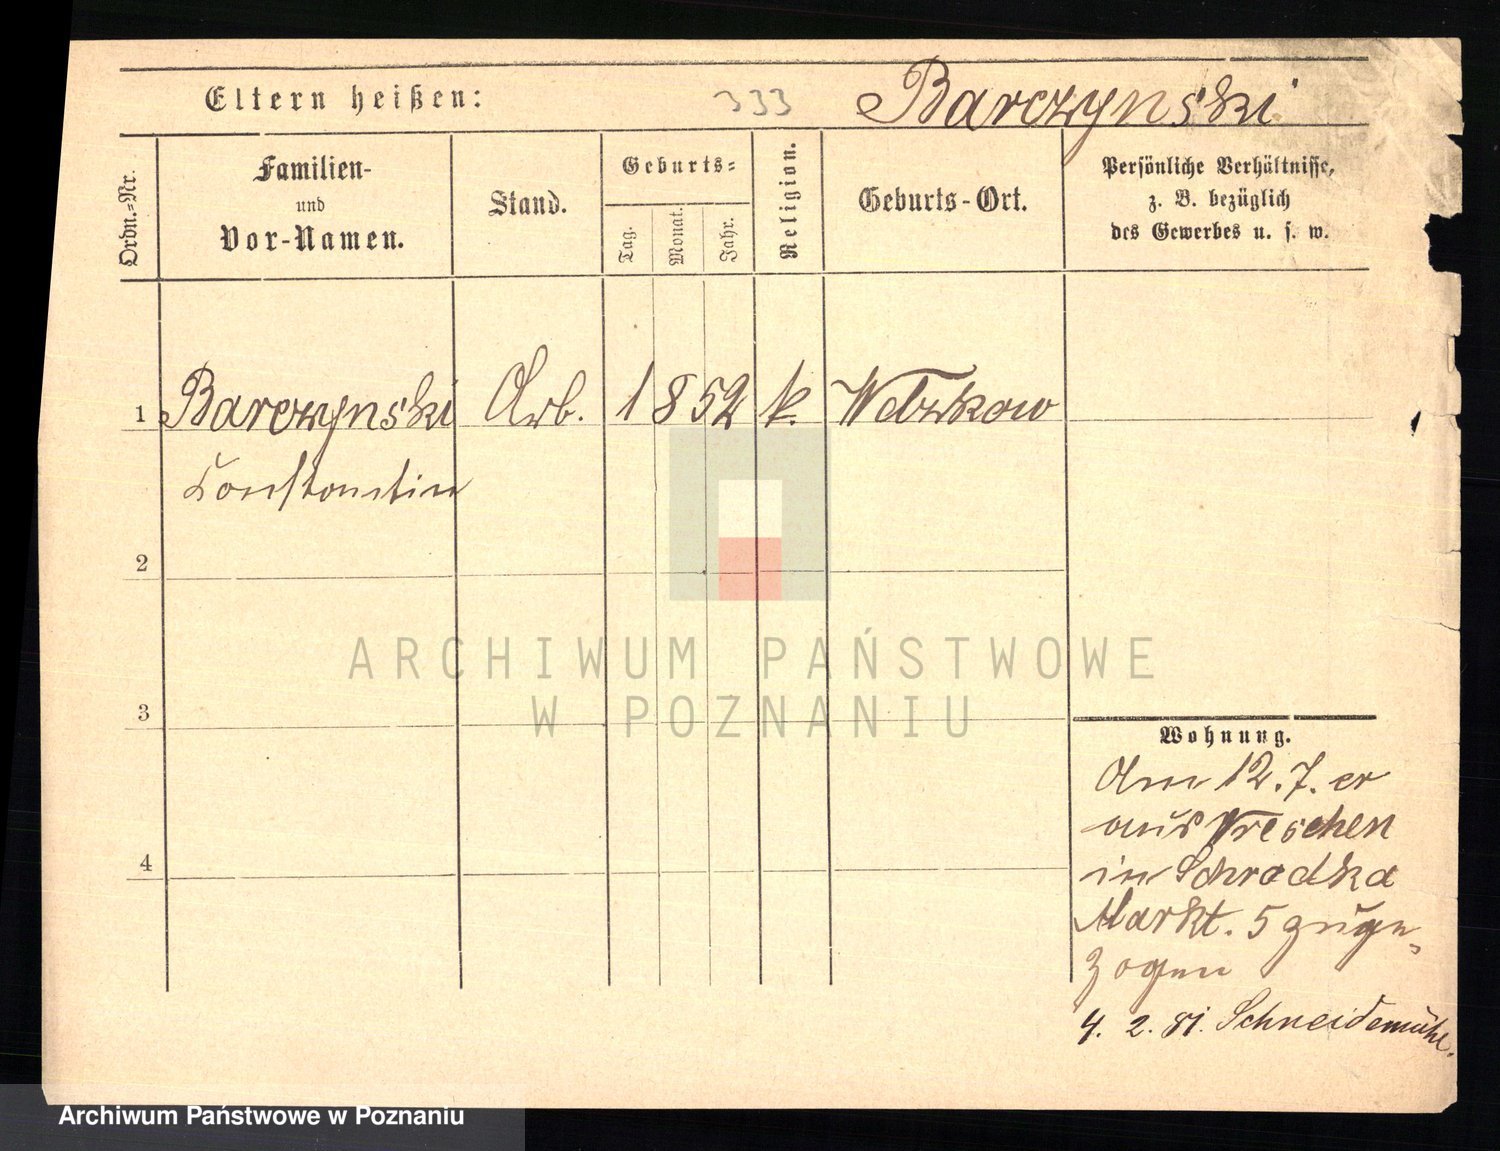 Eltern heißen: 333 Barczynski
Ordn.-Nr.
Familien-
und
Vor-Namen.
Stand.
Geburts-
Tag.
Monat.
Jahr.
Religion.
Geburts-Ort.
Persönliche Verhältnisse,
z. B. bezüglich
des Gewerbes u. s. w.
1 Barczynski Arb. 1852 k.
Constantin
2
3
4
Wohnung.
Am 12. 7. er
aus Wreschen
in Schrodka
Markt. 5 zuge-
zogen
4. 2. 81. Schneidemühl.
ARCHIWUM PAŃSTWOWE
W POZNANIU
Archiwum Państwowe w Poznaniu